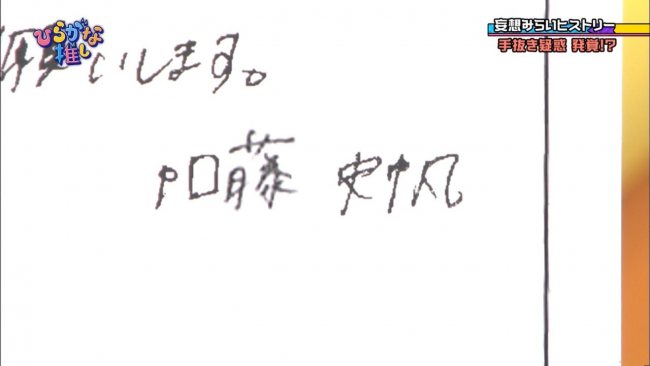 ひらがな推し
妄想みらいヒストリー
手抜き疑惑 発覚!?
願いします。
加藤 史帆